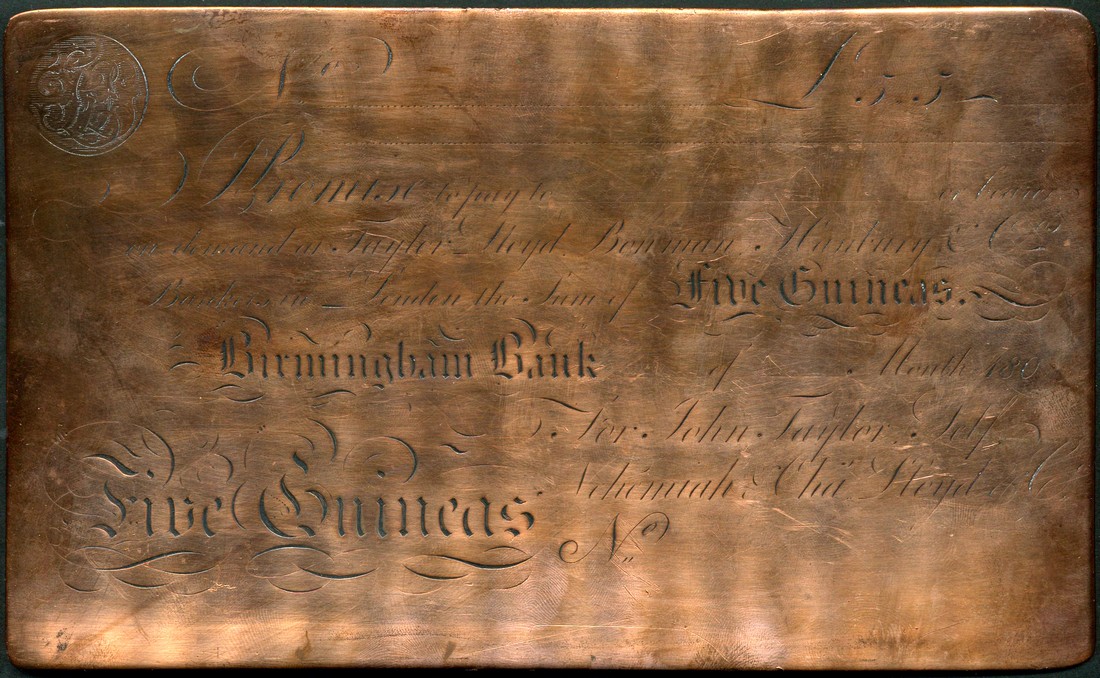 No £5,,5,,-
I Promise to pay to or bearer
on demand at Taylor Lloyd Bowman Hanbury & Cos
Bankers in London the Sum of Five Guineas.
Birmingham Bank of Month 180
For John Taylor, Self
Five Guineas Nehemiah & Chas Lloyd & Co.
No